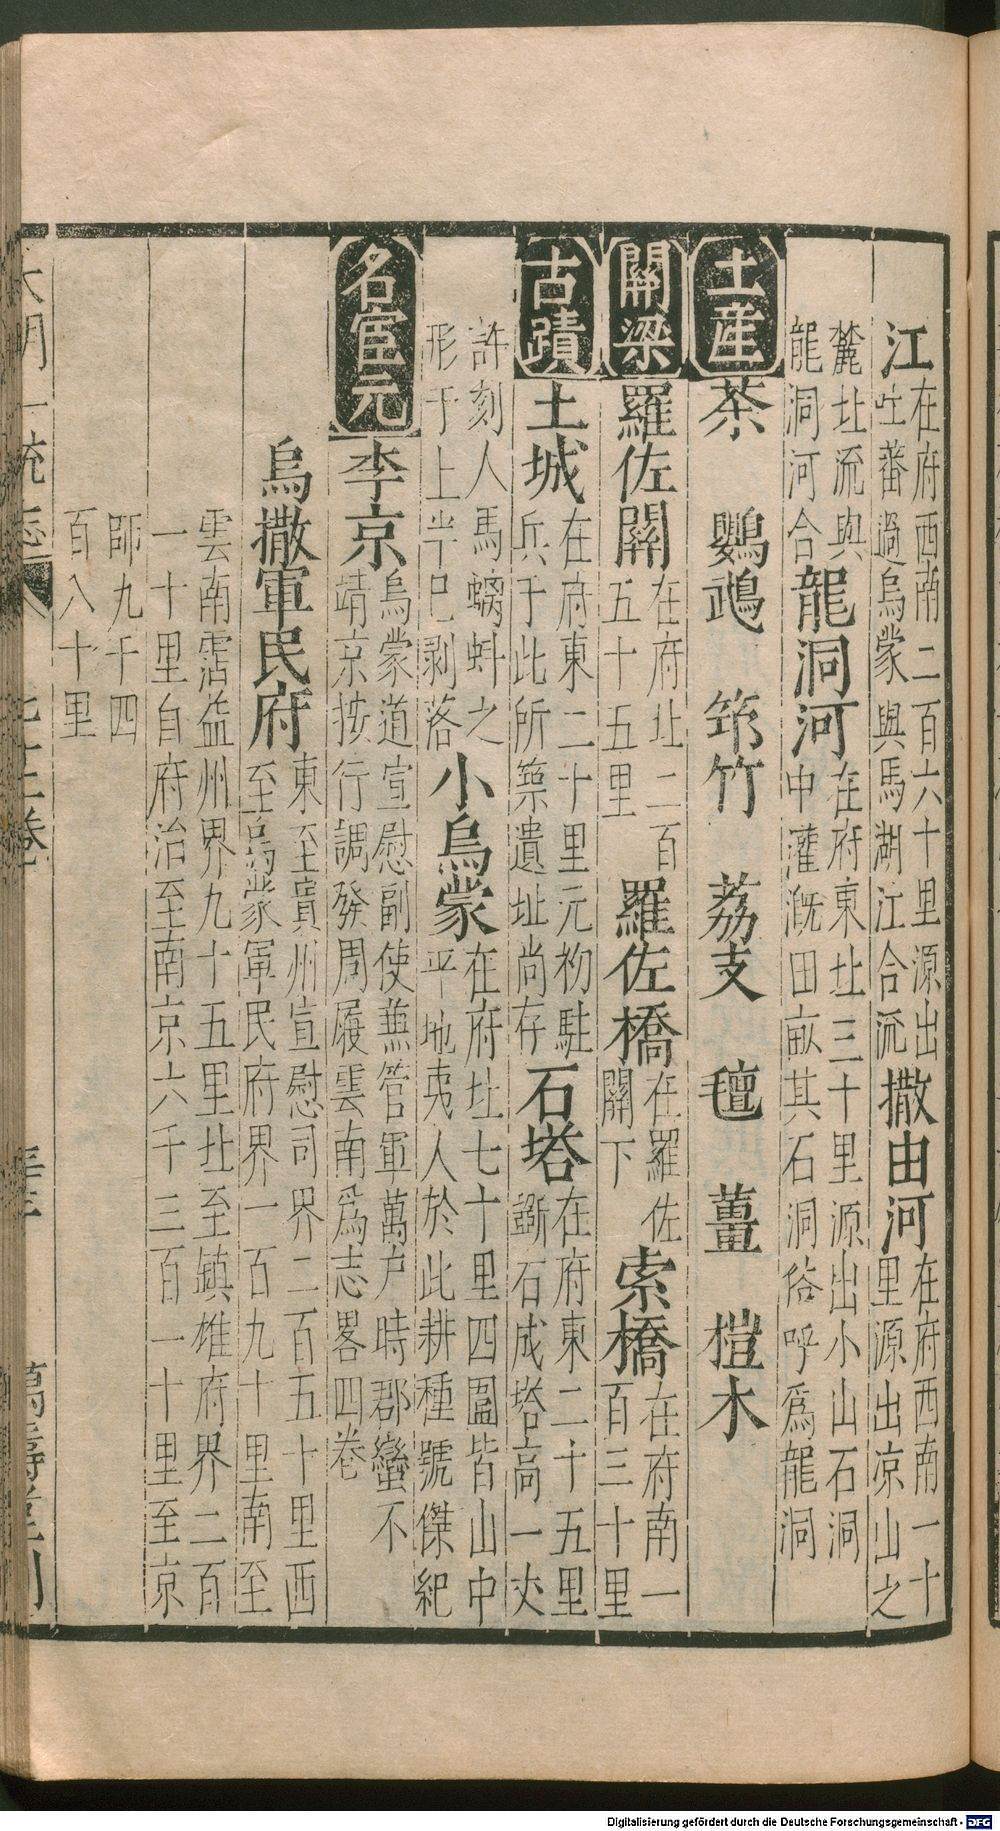 江在府西南二百六十里源出
吐蕃過烏蒙與馬湖江合流撒由河在府西南一十
里源出凉山之
麓北流與
龍洞河合龍洞河在府東北三十里源出小山石洞
中灌漑田畝其石洞俗呼爲龍洞
土産茶 鸚鵡 筇竹 荔支 氊 薑 榿木
關梁羅佐關在府北二百
五十五里羅佐橋在羅佐
關下索橋在府南一
百三十里
古蹟土城在府東二十里元初駐
兵于此所築遺址尚存石塔在府東二十五里
斵石成塔高一丈
許刻人馬螭蚪之
形于上半已剥落小烏蒙在府北七十里四圍皆山中
平地夷人於此耕種號傑紀
名宦元李京烏蒙道宣慰副使兼管軍萬户時郡蠻不
靖京按行調發周履雲南爲志畧四卷
烏撒軍民府東至
州宣慰司界二百五十里西
至烏蒙軍民府界一百九十里南至
雲南霑益州界九十五里北至鎮雄府界二百
一十里自府治至南京六千三百一十里至京
師九千四
百八十里
大明一統志
卷
萬壽堂刊
Digitalisierung gefördert durch die Deutsche Forschungsgemeinschaft - DFG